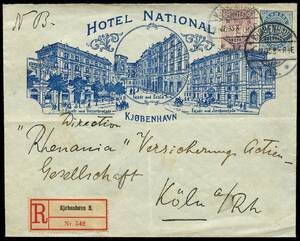 N. B.
HOTEL NATIONAL
KJØBENHAVN
Direction
"Rhenania" Versicherung Actien-
Gesellschaft
Köln a/Rh
R
Kjøbenhavn B.
Nr 542